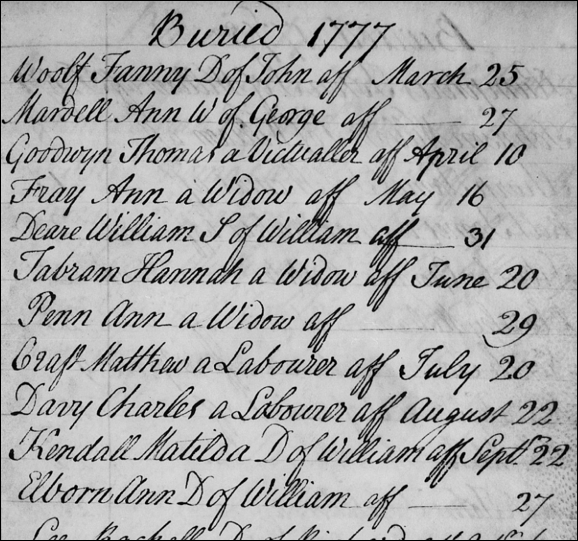 Buried 1777
Woolf Fanny D of John aff March 25
Mardell Ann W of George aff — 27
Goodwyn Thomas a Victualler aff April 10
Fray Ann a Widow aff May 16
Deare William S of William aff — 31
Tabram Hannah a Widow aff June 20
Penn Ann a Widow aff 29
Craft Matthew a Labourer aff July 20
Davy Charles a Labourer aff August 22
Kendall Matilda D of William aff Sept. 22
Elborn Ann D of William aff — 27
Lee Rachell D of Richard aff